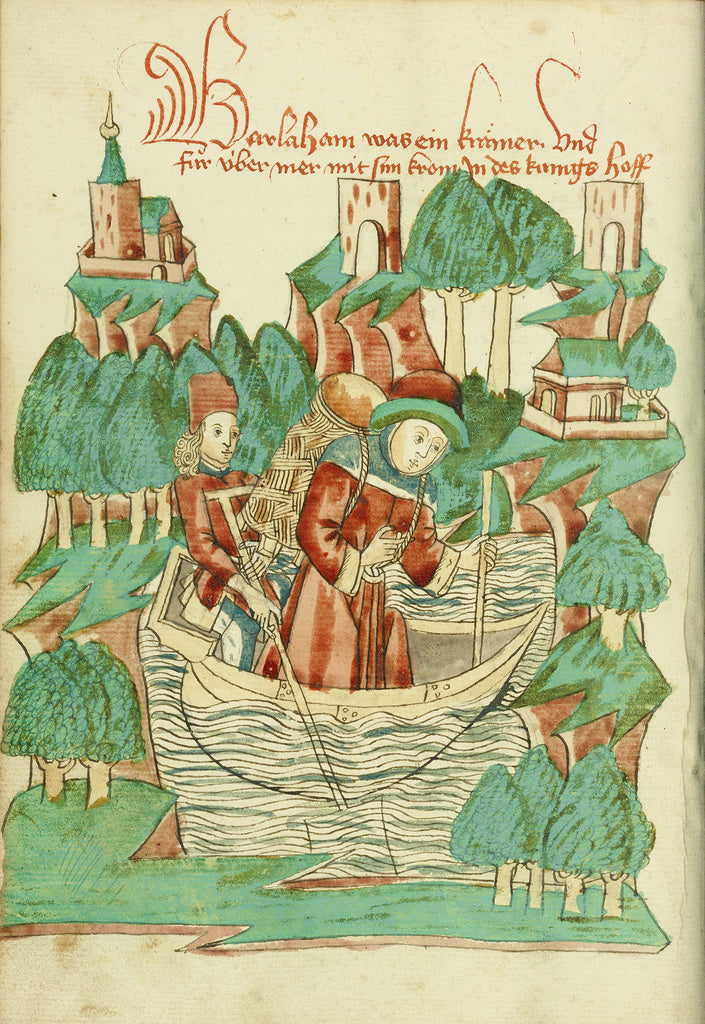 Barlaham was ein krämer. Und
für v́ber mer mit sim krom In des kunigs hoff